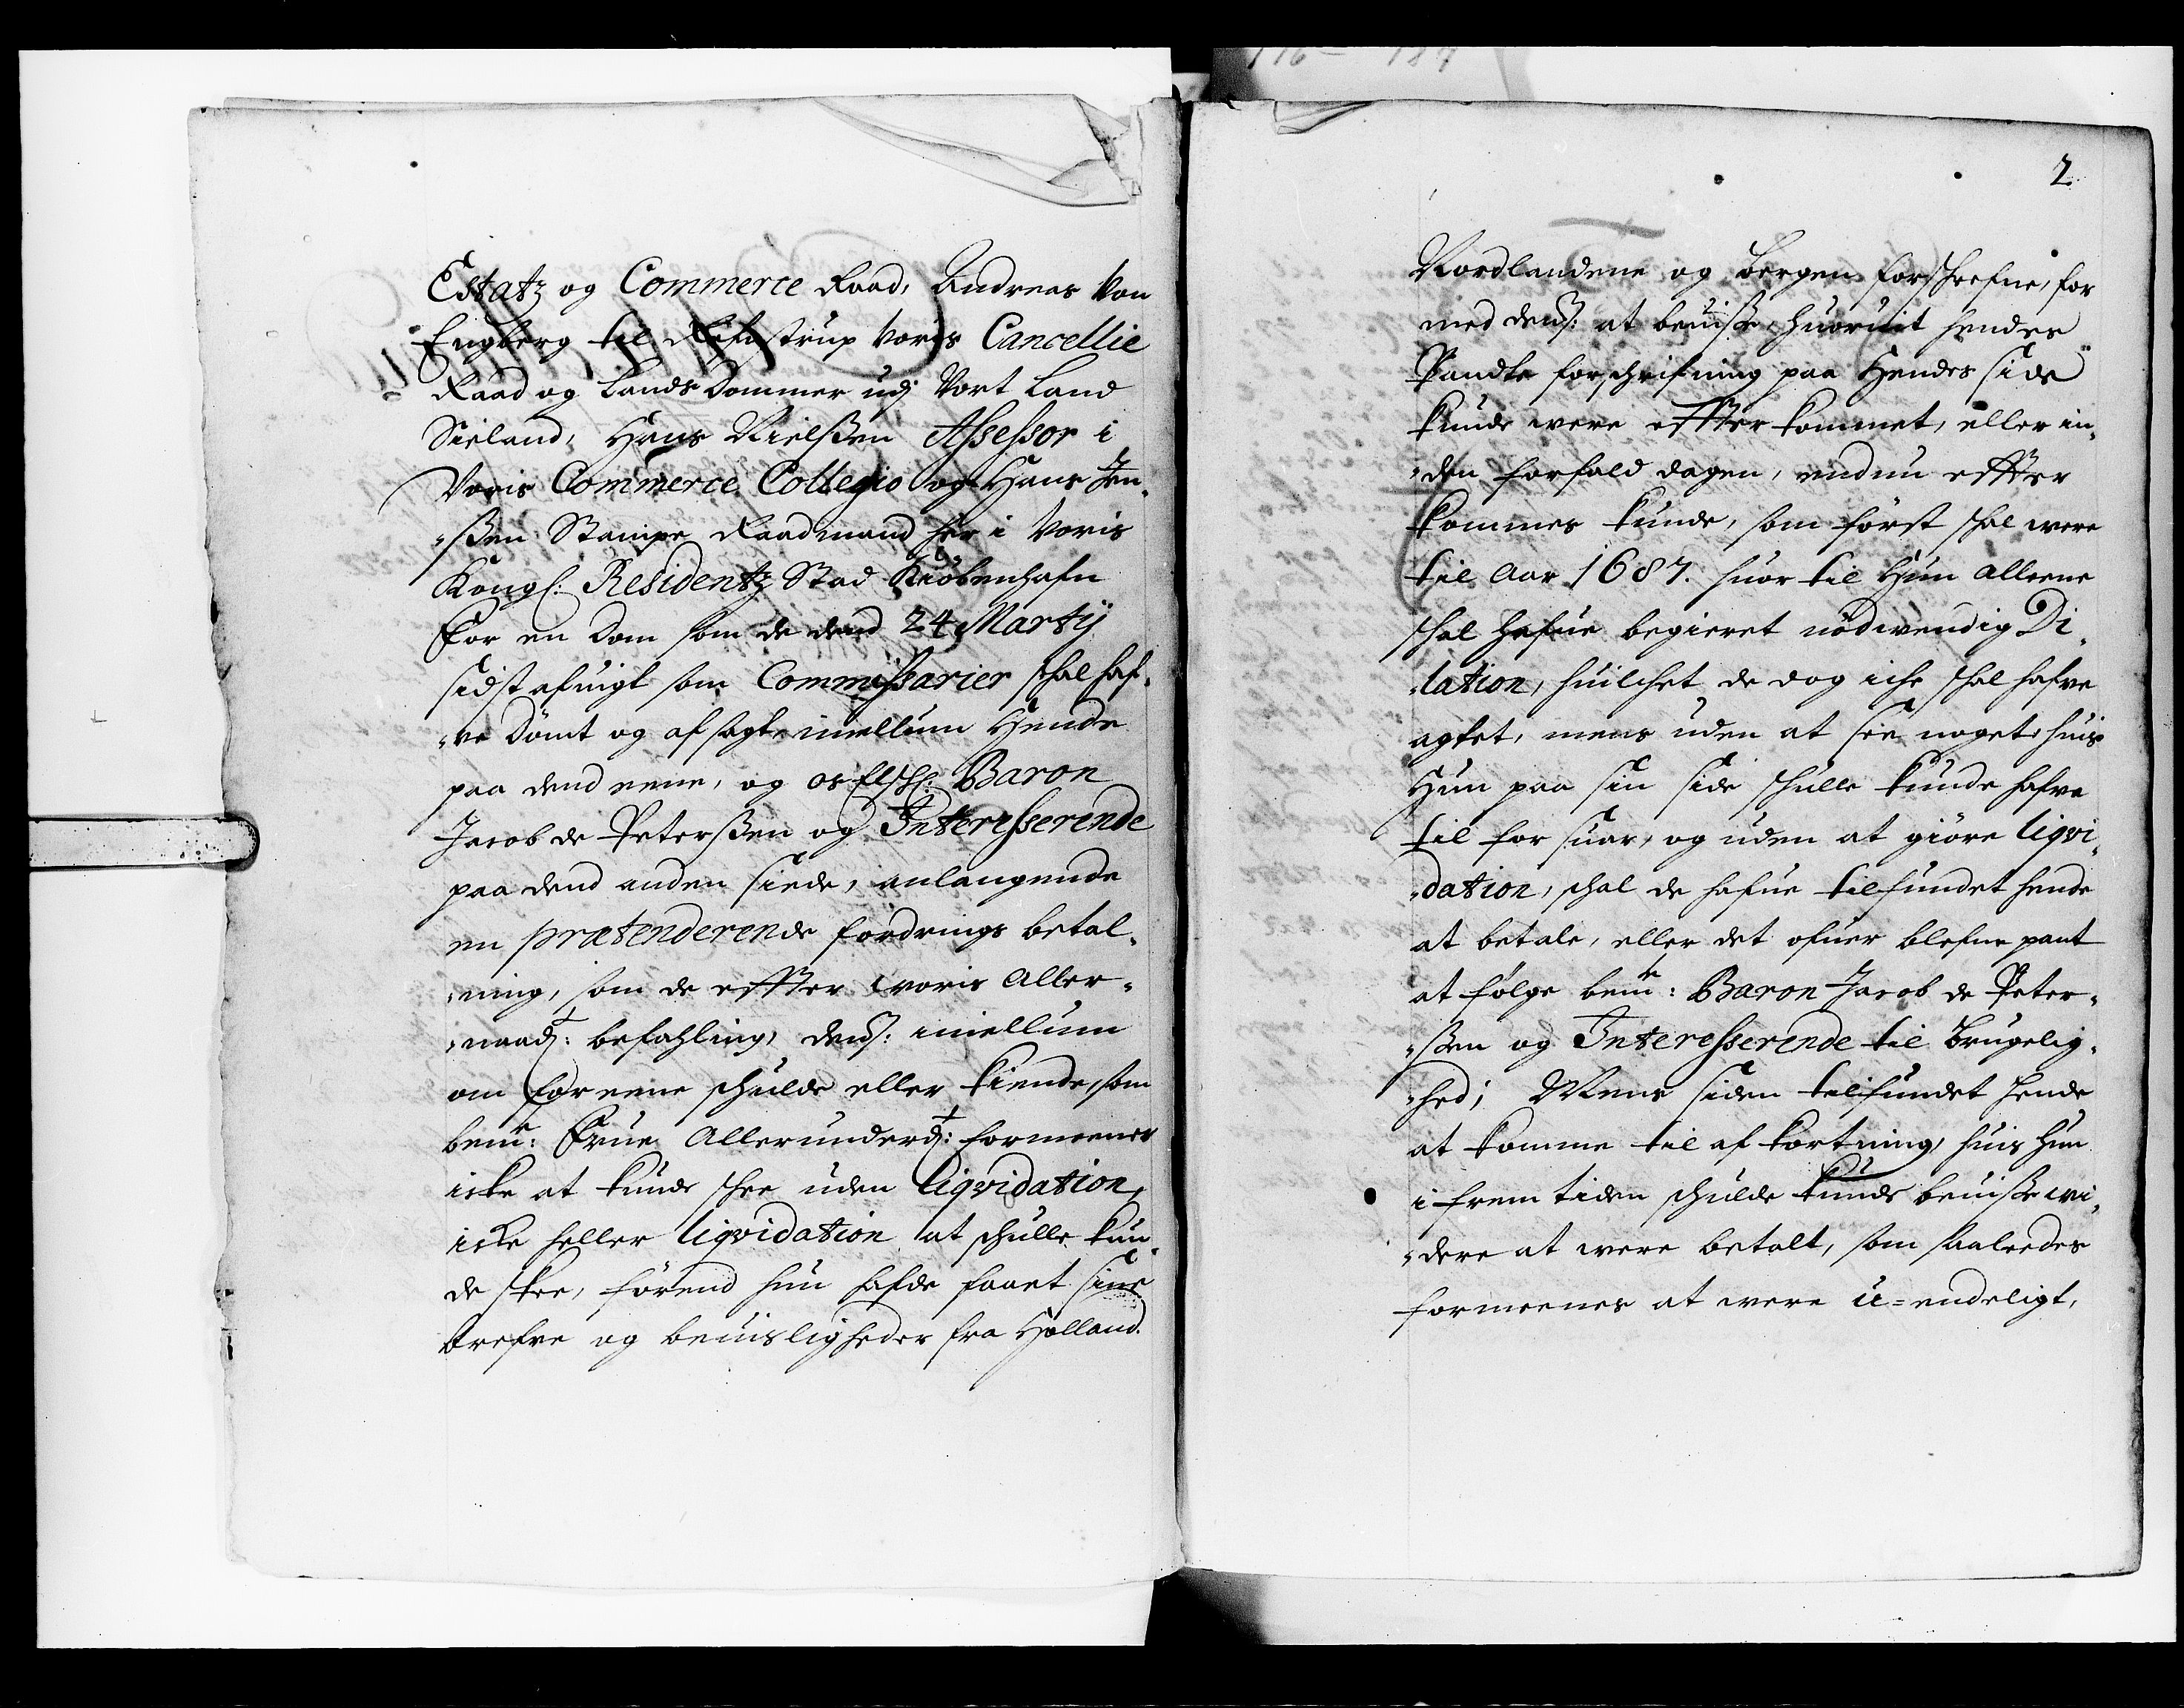 Estatz og Commerce Raad, Andreas von
Engberg til Refstrup Voris Cancellie
Raad og Lands Dommer udj Vort Land
Sieland, Hans Nielsßen Assessor i
Voris Commerce Collegio og Hans Jen„
„ßen Stampe Raadmand her i Voris
Kongl: Residentz Stad Kiöbenhafn
For en Dom som de dend 24 Martij
sidst afuigt som Commissarier schal haf„
„ve Dömt og afsagt imellum Hende
paa dend eene, og os Elschl: Baron
Jacob de Petersßen og Interesserende
paa dend anden siede, anlangende
en prætenderende fordrings betal„
„ning, som de effter woris Aller„
„naad: befahling, dem: imellum
om for eene schulde eller kiende, som
bem: Frue Allerunderd: formeener
icke at kunde schee uden liqvidation,
icke heller liqvidation at schulle kun„
de skee, förend hun hafde faaet sine
brefve og beuisligheder fra Holland.
2
Nordlandene og Bergen forschrefne, for
med dem: at beuiße, huoruit hendes
Pandte forschrifning paa Hendes side
kunde were effterkommet, eller in„
„den forfald dagen, endnu effter
kommes kunde, som först schal were
til Aar 1687. huor til Hun alleene
schal hafue begieret nödwendig Di„
„lation, huilchet de dog iche schal hafve
agtet, mens uden at see noget, huis
Hun paa sin side schulle kunde hafve
til forsuar, og uden at giöre liqvi„
„dation, schal de hafue tilfundet hende
at betale, eller det ofuer blefne pant
at fölge bem: Baron Jacob de Peter„
„ßen og Interesserende til Brugelig„
„hed; Mens siden tilfundet hende
at komme til afkortning, huis hun
i frem tiden schulde kunde beuiße wi„
„dere at were betalt, som saaleedes
formeenes at were u=endeligt,